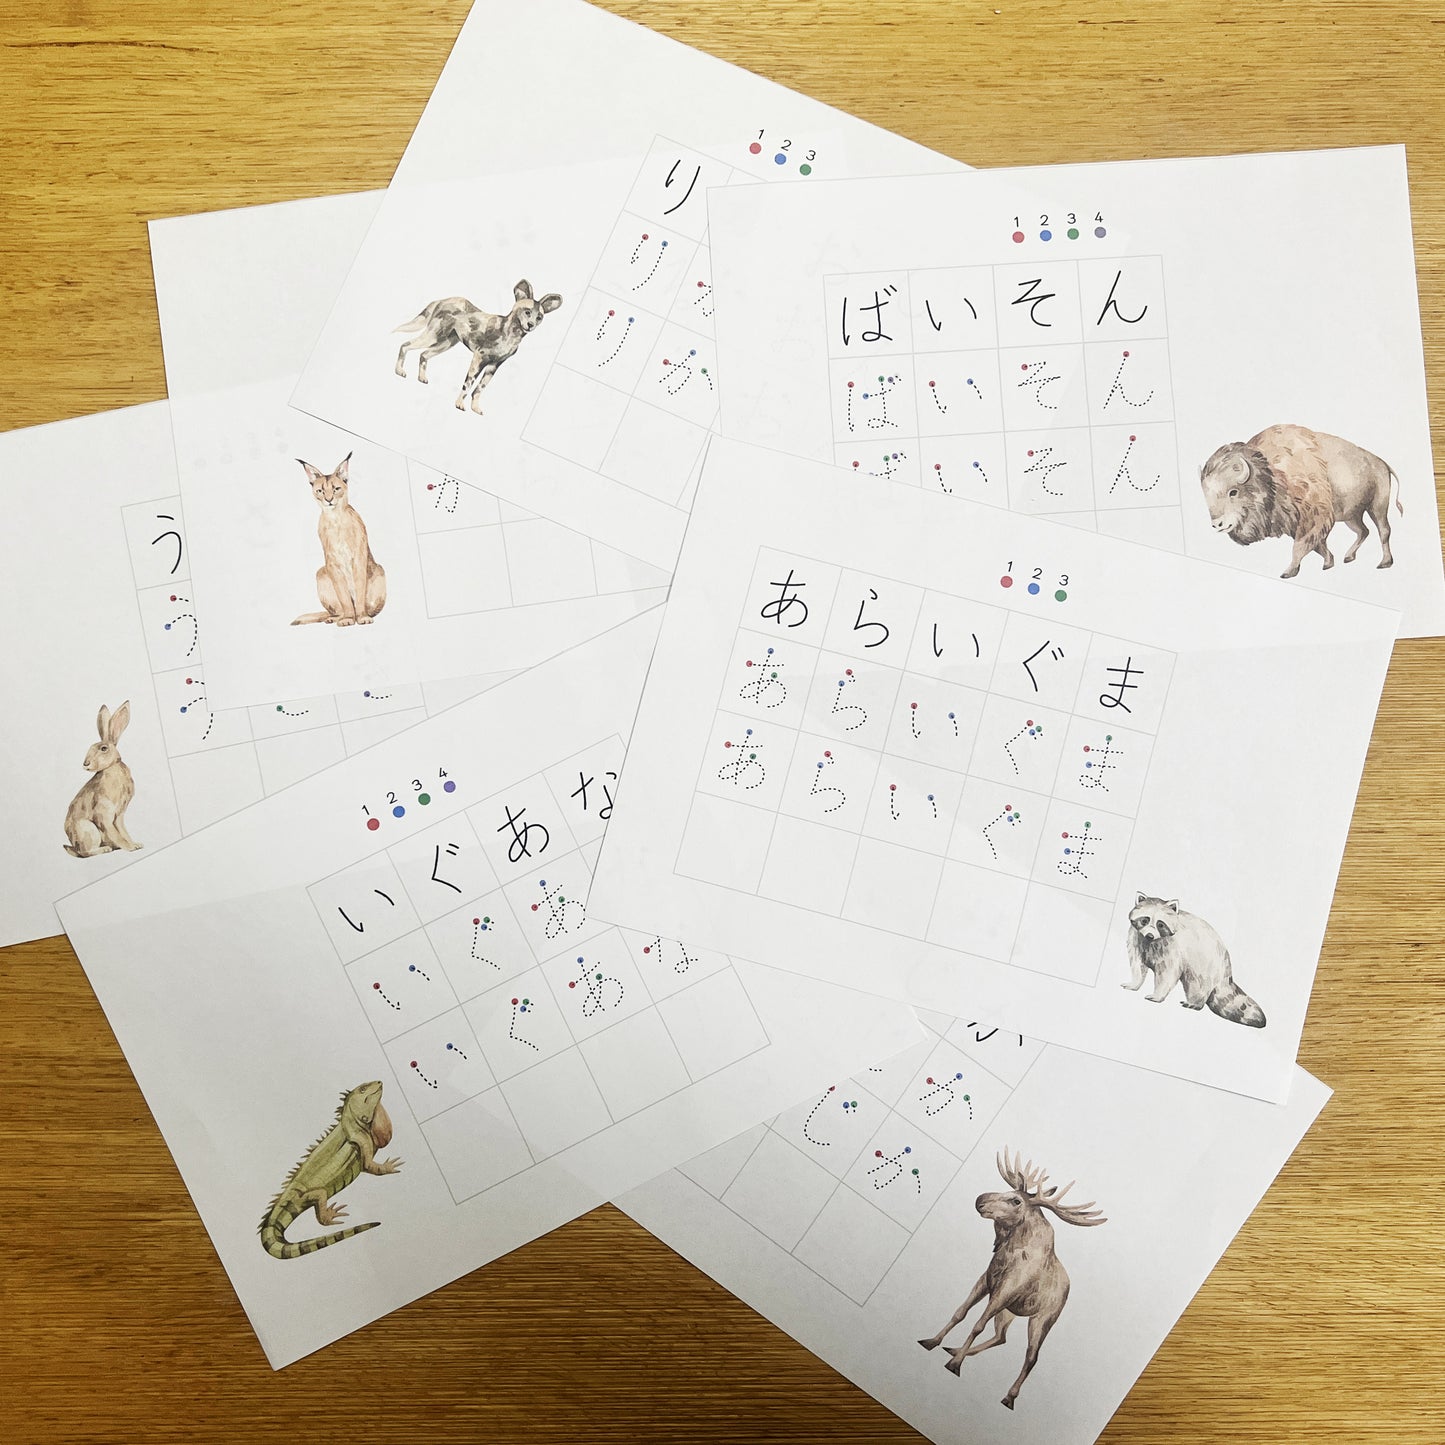 1 2 3
り
り
り か
1 2 3 4
ばいそん
ばいそん
ばいそん
う
う
う
か
1 2 3
あらいぐま
あらいぐま
あらいぐま
1 2 3 4
いぐあな
いぐあ
いぐあな
か
じか